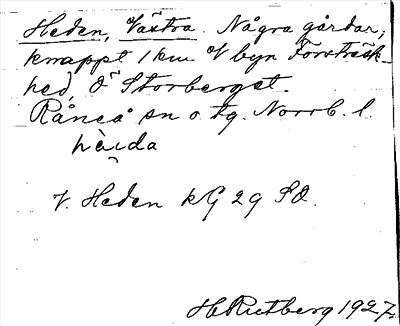 Heden, Västra. Några gårdar,
knappt 1 km V byn Forsträsk-
hed, Ö Storberget.
Råneå sn o tg. Norrb. l.
hèida
V. Heden kG 29 SO.
H Rutberg 1927.